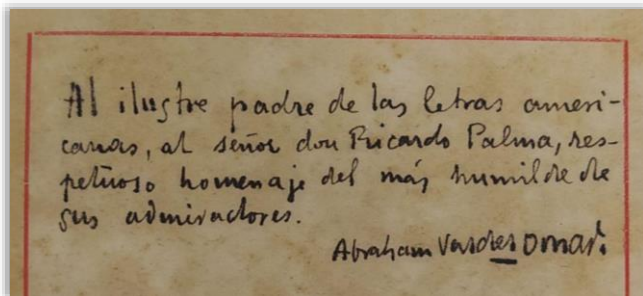 Al ilustre padre de las letras ameri-
canas, al señor don Ricardo Palma, res-
petuoso homenaje del más humilde de
sus admiradores.
Abraham Valdelomar.